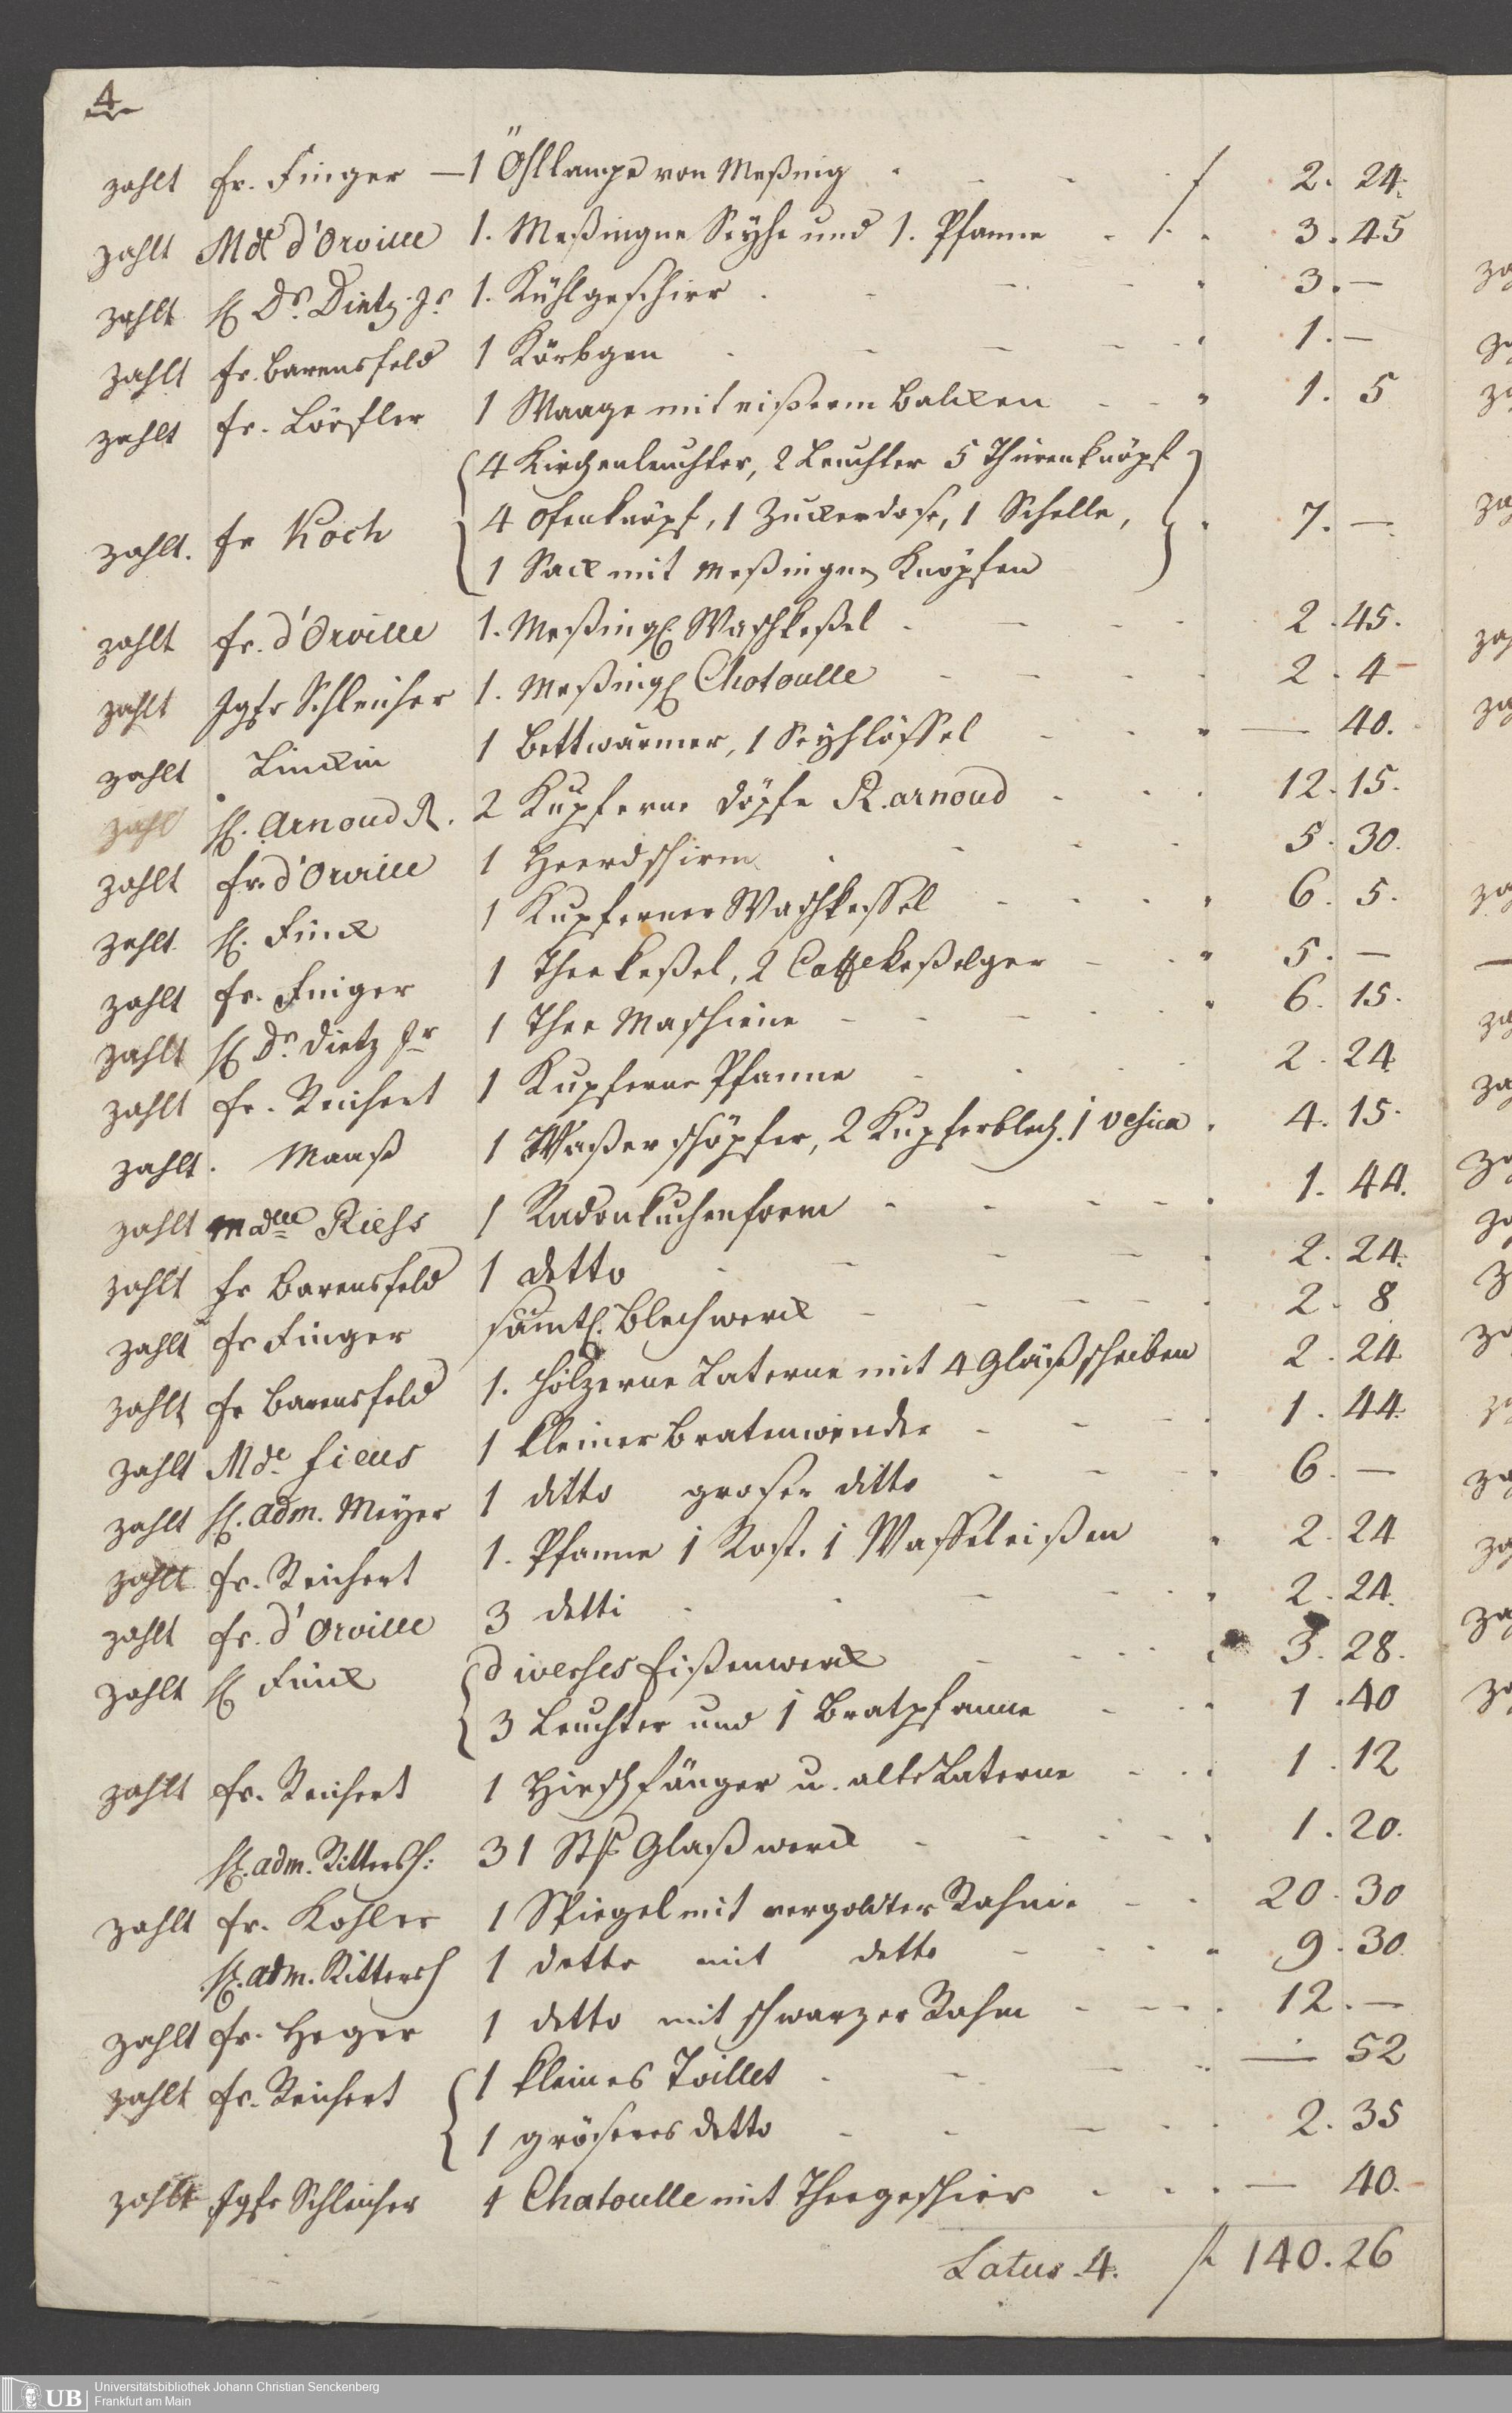 4
zahlt fr. Finger — 1 Öhllampe von Meßing - - - f 2. 24.
zahlt Mde d'Orville 1. Meßingne Seyhe und 1. Pfanne - 3. 45
zahlt H Dr. Dietz Jr 1. Kühlgeschirr - - - 3. —
zahlt fr. Barensfeld 1 Körbgen - - - 1. —
zahlt fr. Löffler 1 Waage mit eißerm Balcken - - 1. 5
4 Kirchenleuchter, 2 Leuchter 5 Thürenknöpf
zahlt. fr Koch 4 Ofenknöpf, 1 Zuckerdose, 1 Schelle, 7. —
1 Sack mit Meßingne Knöpfen
zahlt fr. d'Orville 1. Meßing. Waschkeßel - - - 2. 45.
zahlt Jgfr Schleicher 1. Meßing. Chatoulle - - - 2. 4
zahlt Linckin 1 Bettwärmer, 1 Seyhlöffel - - — 40.
zahlt H. Arnoud R. 2 Kupferne döpfe R. arnoud - - 12. 15.
zahlt fr. d'Orville 1 Heerdschirm - - - 5. 30.
zahlt H. Finck 1 Kupferner Waschkessel - - - 6. 5.
zahlt fr. Finger 1 Theekeßel, 2 Caffekeßelger - - 5. —
zahlt H Dr. Dietz Jr 1 Thee Maschiene - - - 6. 15.
zahlt fr. Reichert 1 Kupferne Pfanne - - - 2. 24
zahlt. Maaß 1 Waßerschöpfer, 2 Kupferblech. 1 Vesica 4. 15.
zahlt Mdlle Riess 1 Radonkuchenform - - - 1. 44.
zahlt fr Barensfeld 1 detto - - - 2. 24.
zahlt fr Finger sämtl. Blechwerck - - - 2. 8
zahlt fr Barensfeld 1. hölzerne Laterne mit 4 Gläßscheiben 2. 24
zahlt Mde. ficus 1 kleiner Bratenwender - - 1. 44.
zahlt H. adm. Meyer 1 ditto groser ditto - - 6. —
zahlt fr. Reichert 1. Pfanne 1 Rost. 1 Waffeleißen 2. 24
zahlt fr. d'Orville 3 detti - - - 2. 24.
zahlt H Finck diverses Eißenwerck - - - 3. 28.
3 Leuchter und 1 Bratpfanne - - 1. 40
zahlt fr. Reichert 1 Hirschfänger u. alte Laterne - - 1. 12
H. adm. Rittersh: 31 Stk Glaßwerck - - - 1. 20.
zahlt fr. Kohler 1 Spiegel mit vergoldter Rahme - - 20. 30
H. adm. Rittersh 1 detto mit detto - - - 9. 30.
zahlt fr. Heger 1 detto mit schwarzer Rahm - - - 12. —
zahlt fr. Reichert 1 kleines Toillet - - - — 52
1 gröseres detto - - - 2. 35
zahlt Jgfr Schleicher 1 Chatoulle mit Theegeschirr - - - — 40.
Latus. 4. f 140. 26
UB Universitätsbibliothek Johann Christian Senckenberg
Frankfurt am Main